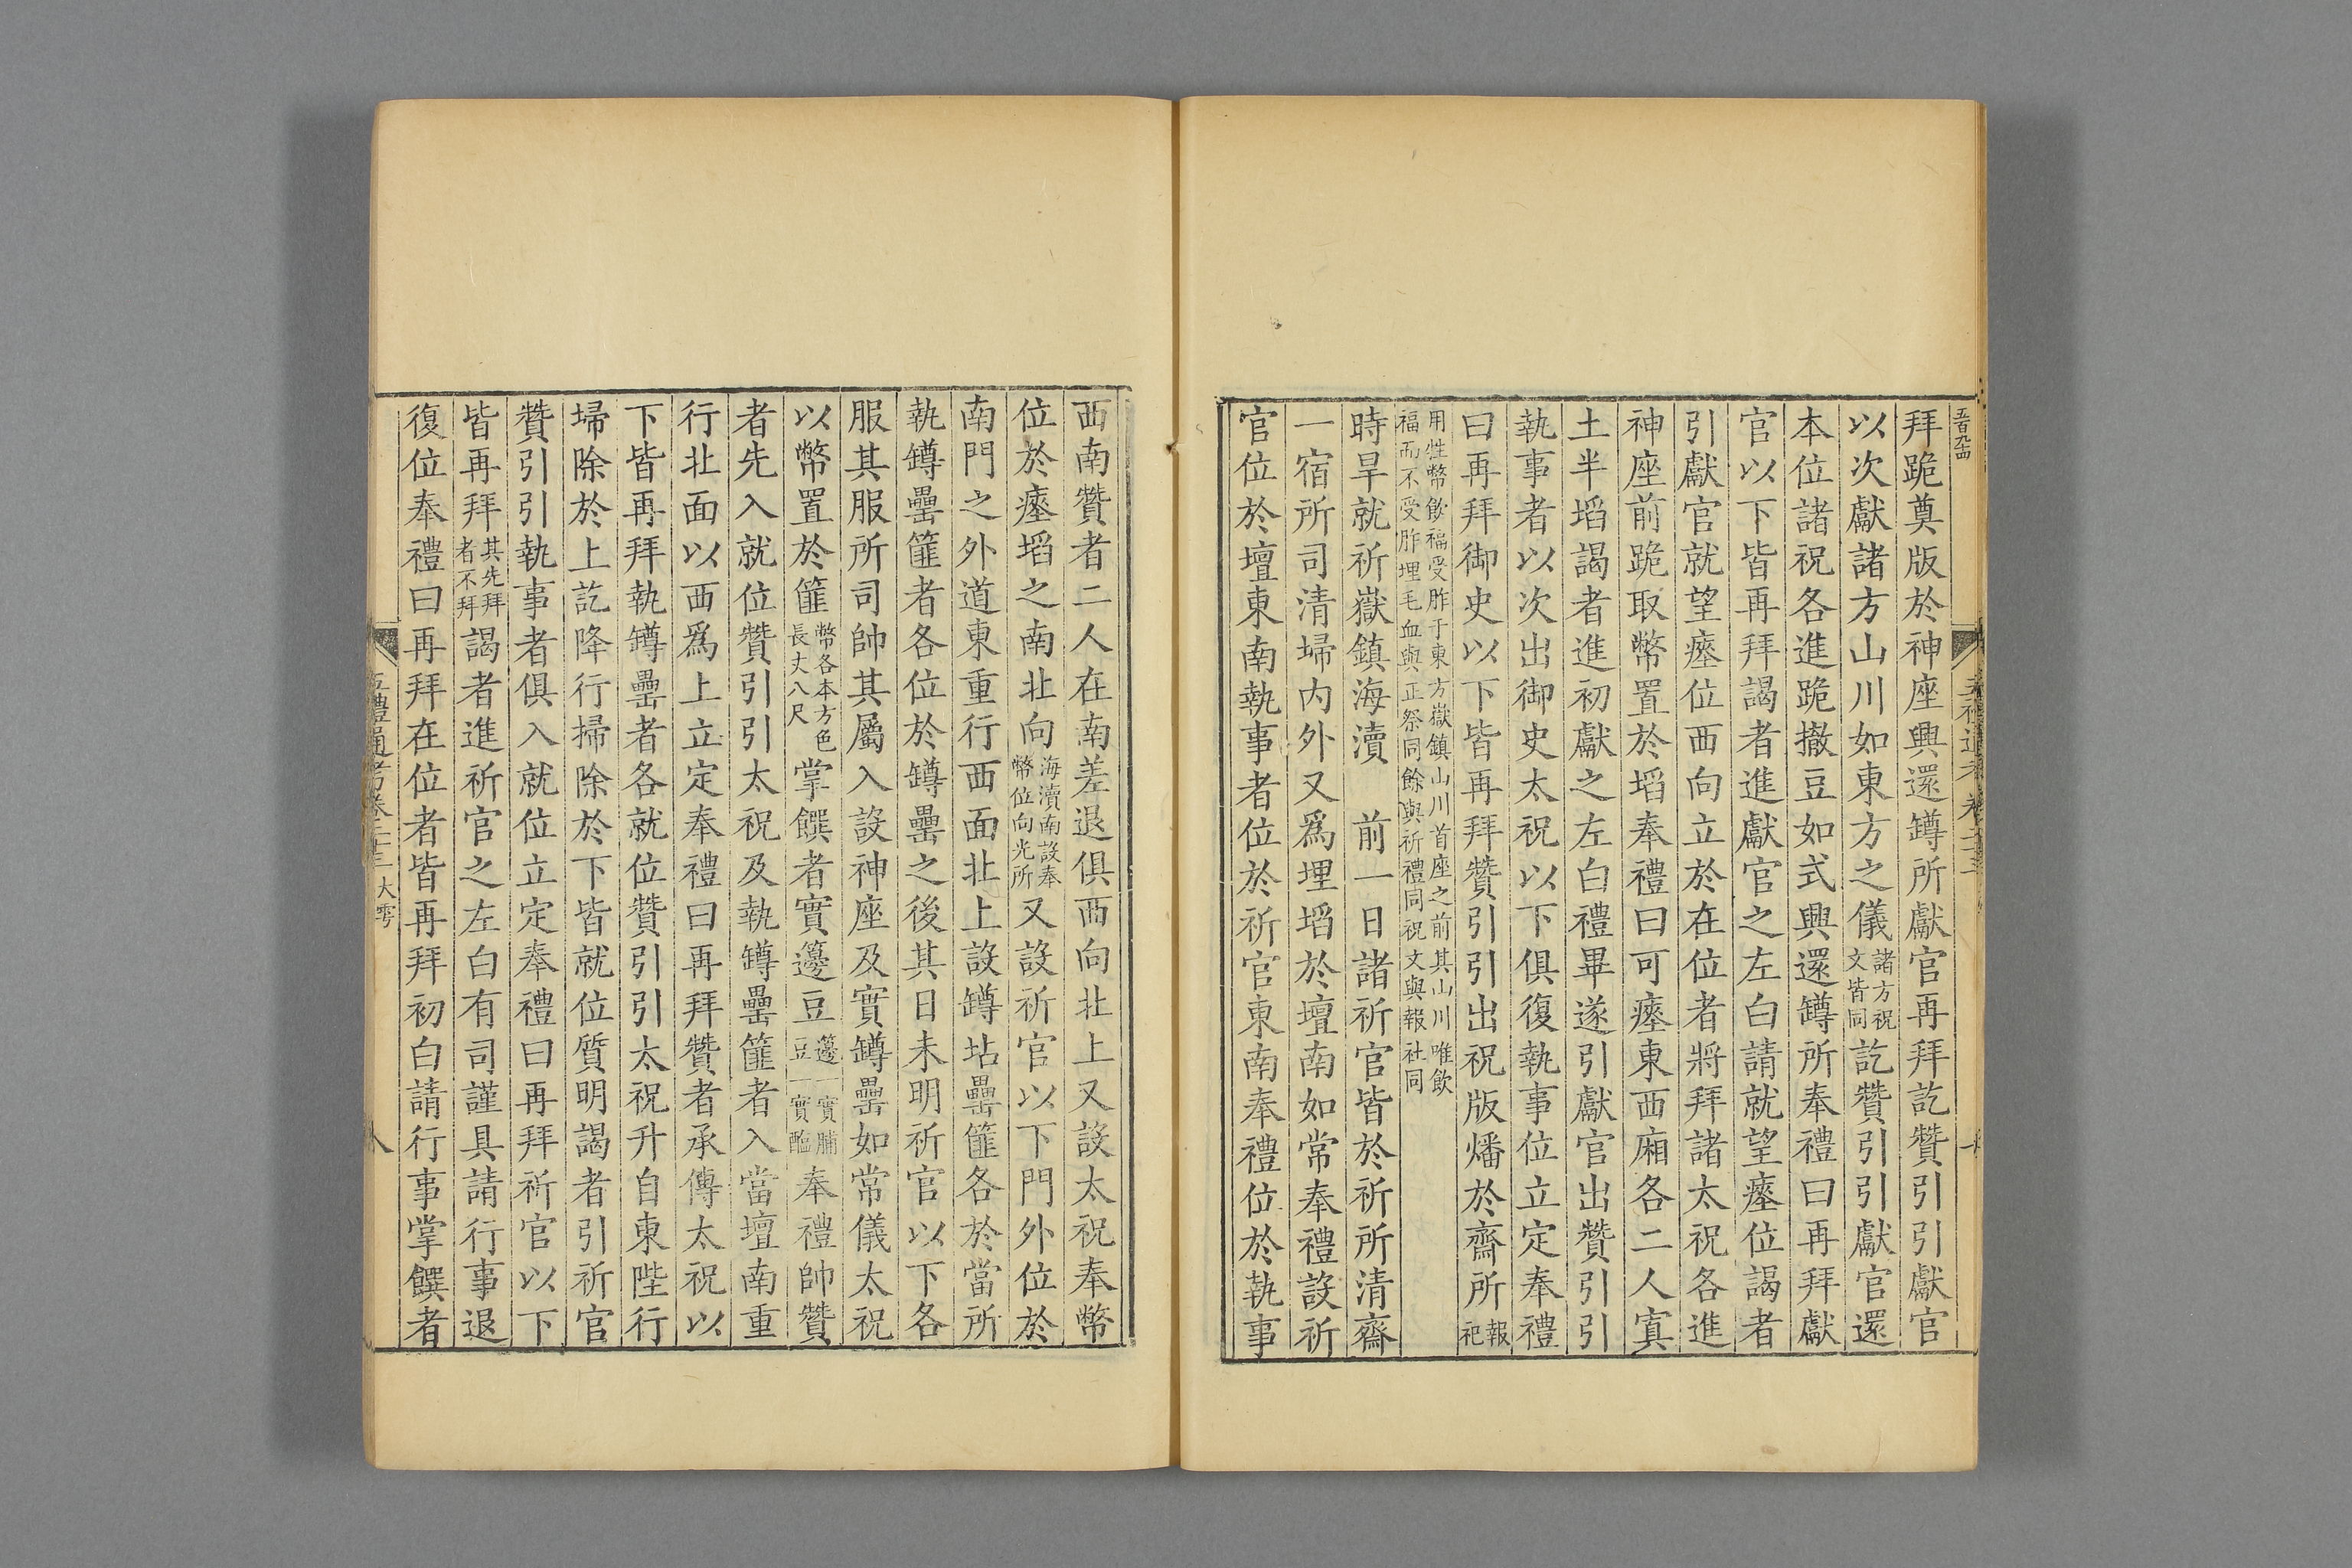 拜跪奠版於神座興還罇所獻官再拜訖贊引引獻官
以次獻諸方山川如東方之儀諸方祝文皆同訖贊引引獻官還
本位諸祝各進跪撤豆如式興還罇所奉禮曰再拜獻
官以下皆再拜謁者進獻官之左白請就望瘞位謁者
引獻官就望瘞位西向立於在位者將拜諸太祝各進
神座前跪取幣置於埳奉禮曰可瘞東西廂各二人寘
土半埳謁者進初獻之左白禮畢遂引獻官出贊引引
執事者以次出御史太祝以下俱復執事位立定奉禮
曰再拜御史以下皆再拜贊引引出祝版燔於齋所報祀
用牲幣飲福受胙于東方嶽鎮山川首座之前其山川唯飲
福而不受胙埋毛血與正祭同餘與祈禮同祝文與報社同
時旱就祈嶽鎮海瀆 前一日諸祈官皆於祈所清齋
一宿所司清埽內外又爲埋埳於壇南如常奉禮設祈
官位於壇東南執事者位於祈官東南奉禮位於執事
西南贊者二人在南差退俱西向北上又設太祝奉幣
位於瘞埳之南北向海瀆南設奉幣位向光所又設祈官以下門外位於
南門之外道東重行西面北上設罇坫罍篚各於當所
執罇罍篚者各位於罇罍之後其日未明祈官以下各
服其服所司帥其屬入設神座及實罇罍如常儀太祝
以幣置於篚幣各本方色長丈八尺掌饌者實籩豆籩一實脯豆一實醢奉禮帥贊
者先入就位贊引引太祝及執罇罍篚者入當壇南重
行北面以西爲上立定奉禮曰再拜贊者承傳太祝以
下皆再拜執罇罍者各就位贊引引太祝升自東陛行
埽除於上訖降行掃除於下皆就位質明謁者引祈官
贊引引執事者俱入就位立定奉禮曰再拜祈官以下
皆再拜其先拜者不拜謁者進祈官之左白有司謹具請行事退
復位奉禮曰再拜在位者皆再拜初白請行事掌饌者
五禮通考卷二十三 大雩 八